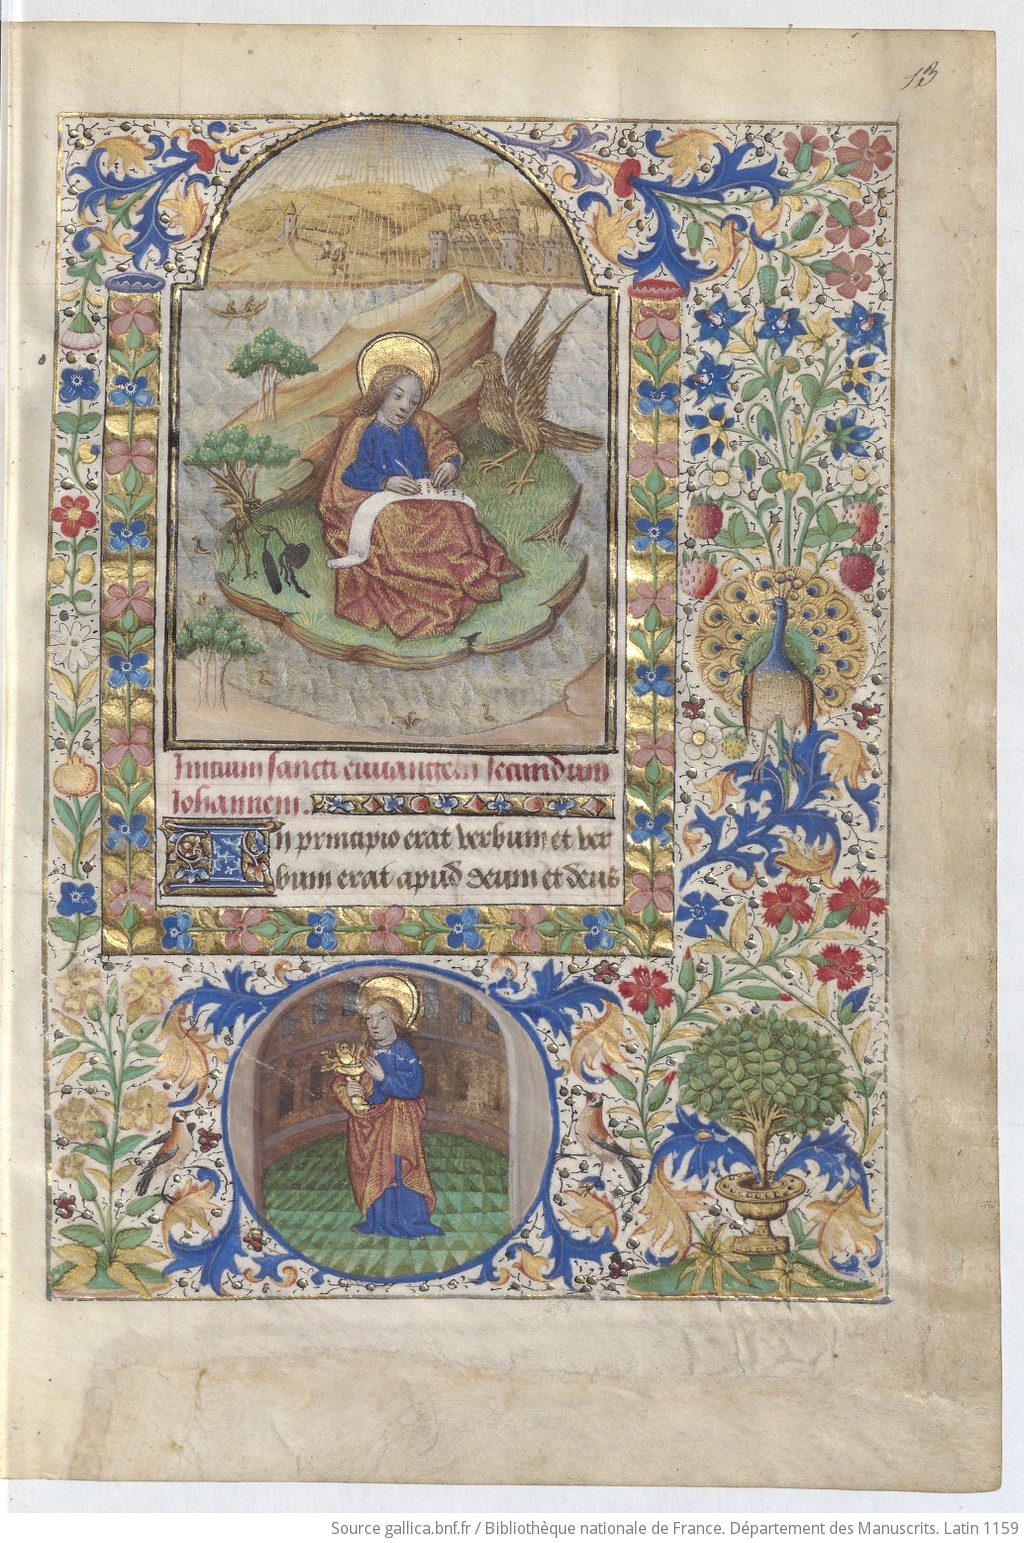 13
Initium sancti euuangelii secundum
Iohannem.
In principio erat verbum et ver
bum erat apud deum et deus
Source gallica.bnf.fr / Bibliothèque nationale de France. Département des Manuscrits. Latin 1159